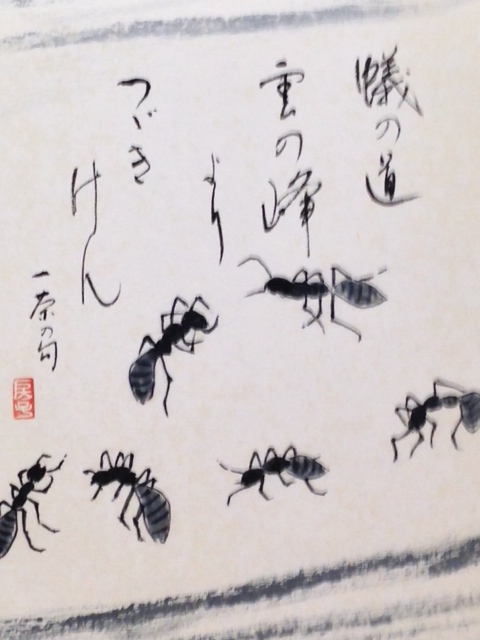 蟻の道
雲の峰
より
つゞき
けん
一茶の句